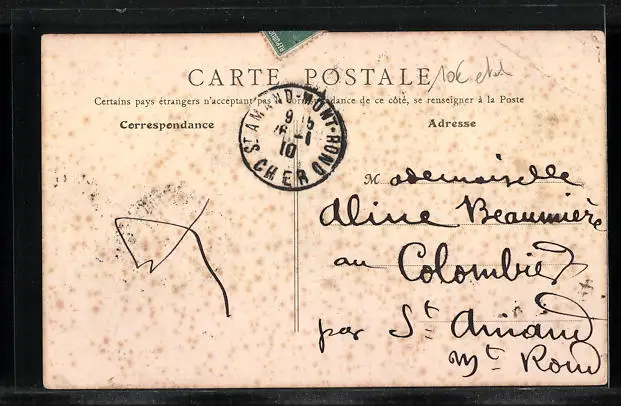 CARTE POSTALE
Certains pays étrangers n'acceptant pas la correspondance de ce côté, se renseigner à la Poste
Correspondance
Adresse
ST AMAND-MONT-ROND
9
10
CHER
Mademoiselle
Aline Beaumière
au Colombier
par St. Amand
Mt. Rond